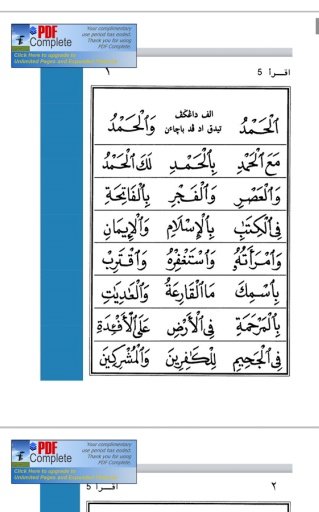 PDF Complete
Your complimentary
use period has ended.
Thank you for using
PDF Complete.
Click Here to upgrade to
Unlimited Pages and Expanded Features
١
اقرأ 5
اَلْحَمْدُ الف داڠكڤ وَالْحَمْدُ
تيدق اد قد باچاءن
مَعَ الْحَمْدِ بِالْحَمْدِ لَكَ الْحَمْدُ
وَالْعَصْرِ وَالْفَجْرِ بِالْفَاتِحَةِ
فِى الْكِتٰبِ بِالْإِسْلَامِ وَالْإِيمَانِ
وَامْرَأَتُهُۥ وَاسْتَغْفِرْهُ وَاقْتَرِبْ
بِاسْمِكَ مَاالْقَارِعَةُ وَالْعٰدِيٰتِ
بِالْمَرْحَمَةِ فِى الْأَرْضِ عَلَى الْأَفْئِدَةِ
فِى الْجَحِيمِ لِلْكَافِرِينَ وَالْمُشْرِكِينَ
PDF Complete
Your complimentary
use period has ended.
Thank you for using
PDF Complete.
Click Here to upgrade to
Unlimited Pages and Expanded Features
اقرأ 5
٢